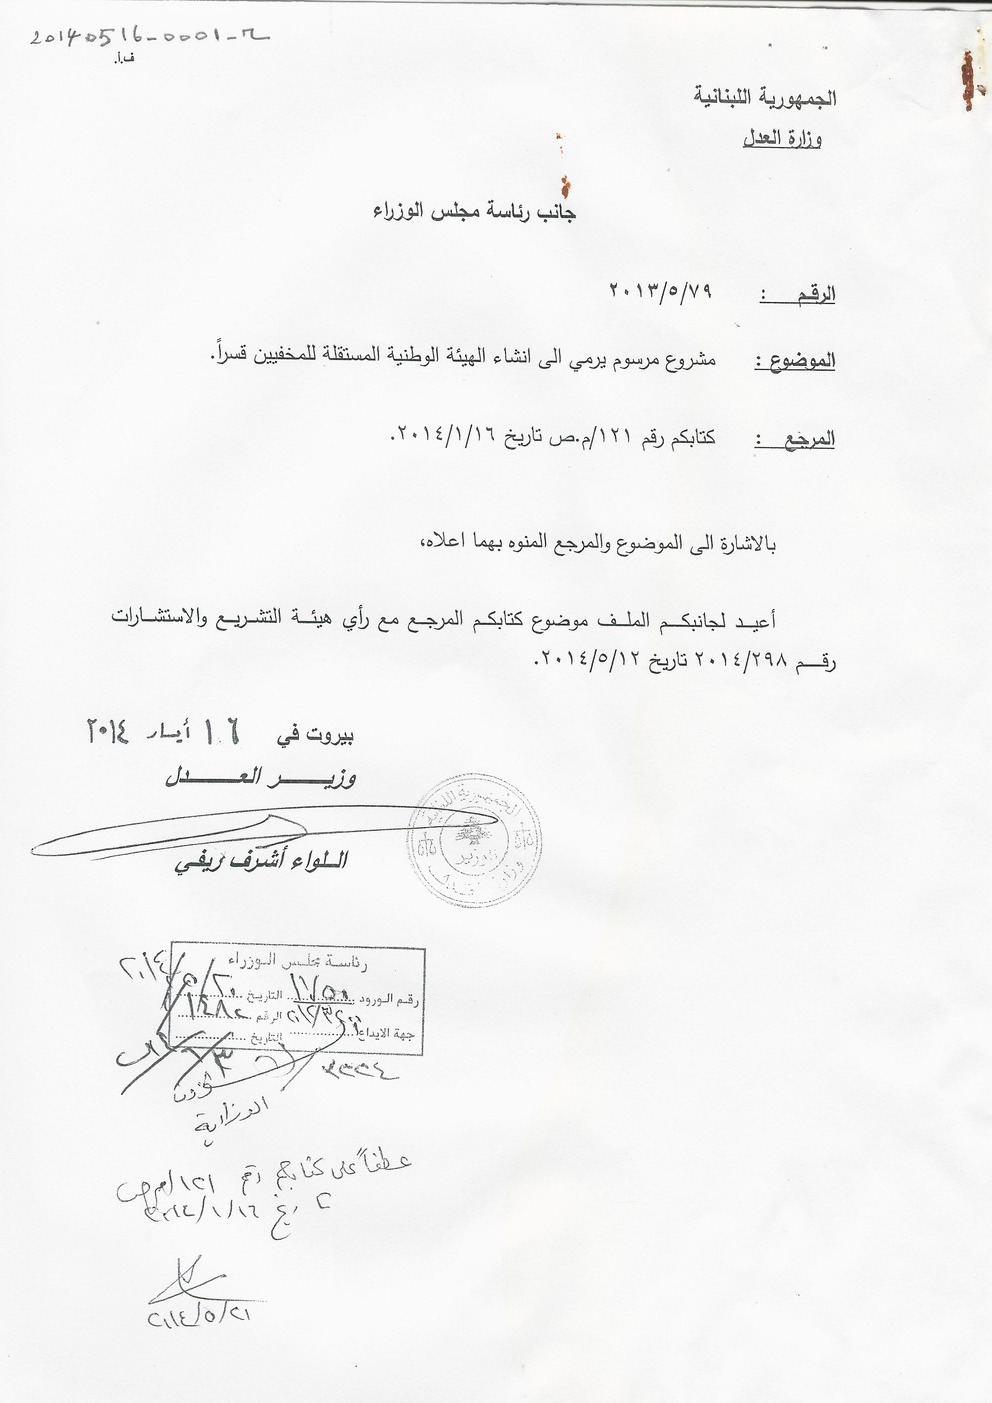 20140516-0001-r
ف.أ.
الجمهورية اللبنانية
وزارة العدل
جانب رئاسة مجلس الوزراء
الرقم : ٢٠١٣/٥/٧٩
الموضوع : مشروع مرسوم يرمي الى انشاء الهيئة الوطنية المستقلة للمخفيين قسراً.
المرجع : كتابكم رقم ١٢١/م.ص تاريخ ٢٠١٤/١/١٦.
بالاشارة الى الموضوع والمرجع المنوه بهما اعلاه،
أعيد لجانبكم الملف موضوع كتابكم المرجع مع رأي هيئة التشريع والاستشارات
رقم ٢٠١٤/٢٩٨ تاريخ ٢٠١٤/٥/١٢.
بيروت في ١٦ أيار ٢٠١٤
وزير العدل
اللواء أشرف ريفي
الجمهورية اللبنانية
الوزير
وزارة العدل
رئاسة مجلس الوزراء
رقم الورود التاريخ ٢٠١٤/٥/٢٠
جهة الايداع الرقم
التاريخ
شؤون
الوزارية
عطفاً على كتابكم رقم ١٢١/م ص
تاريخ ٢٠١٤/١/١٦
٢٠١٤/٥/٢١